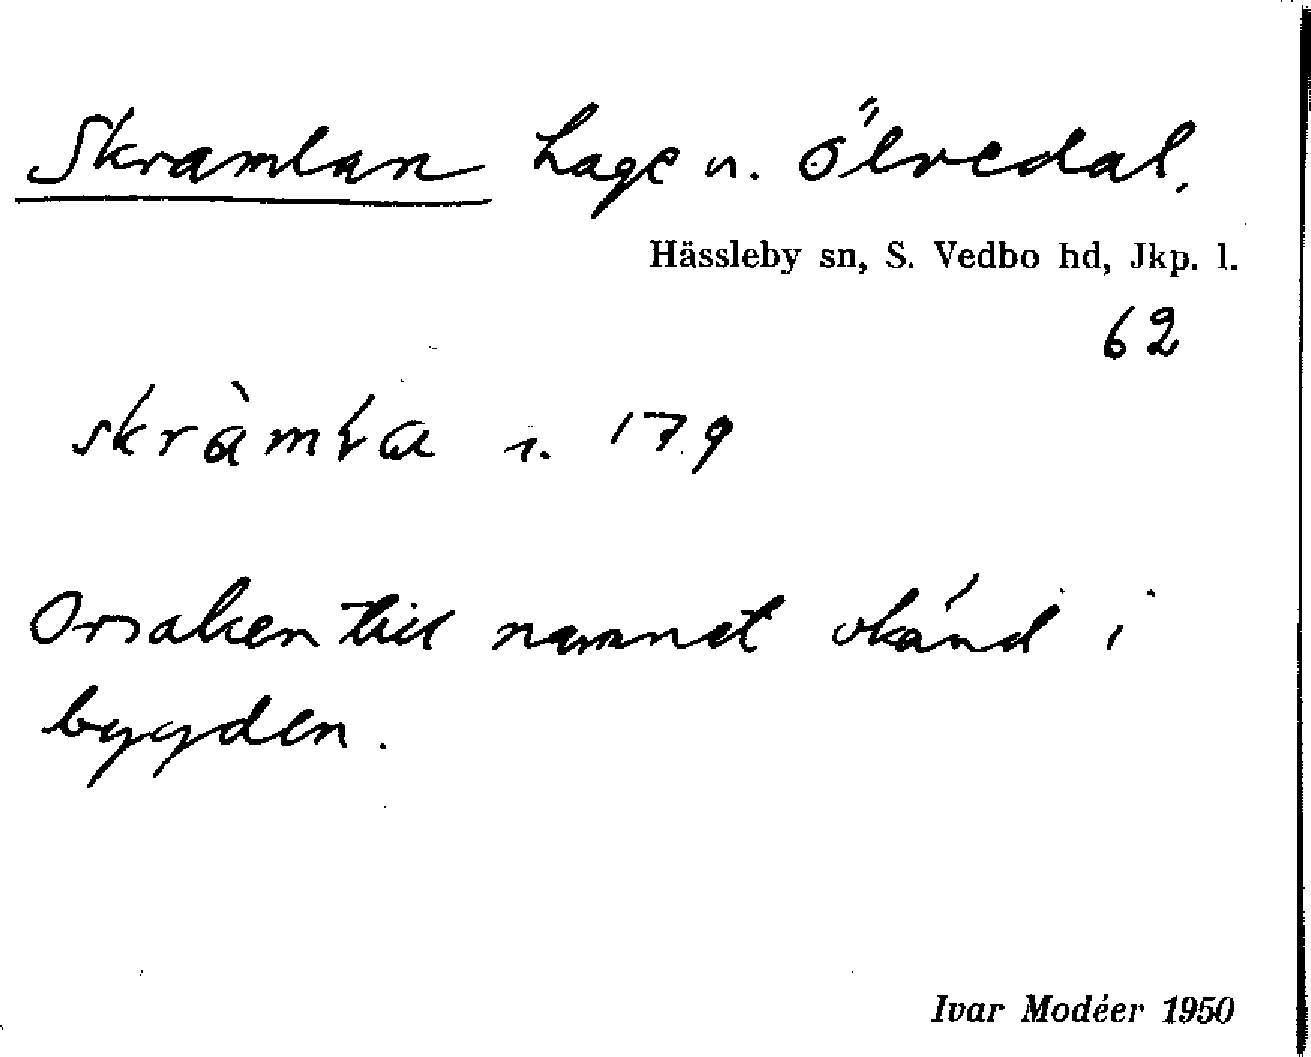 Skramlan hage u. Ölvedal.
Hässleby sn, S. Vedbo hd, Jkp. l.
62
skràmla s. 179
Orsaken till namnet okänd i
bygden.
Ivar Modéer 1950